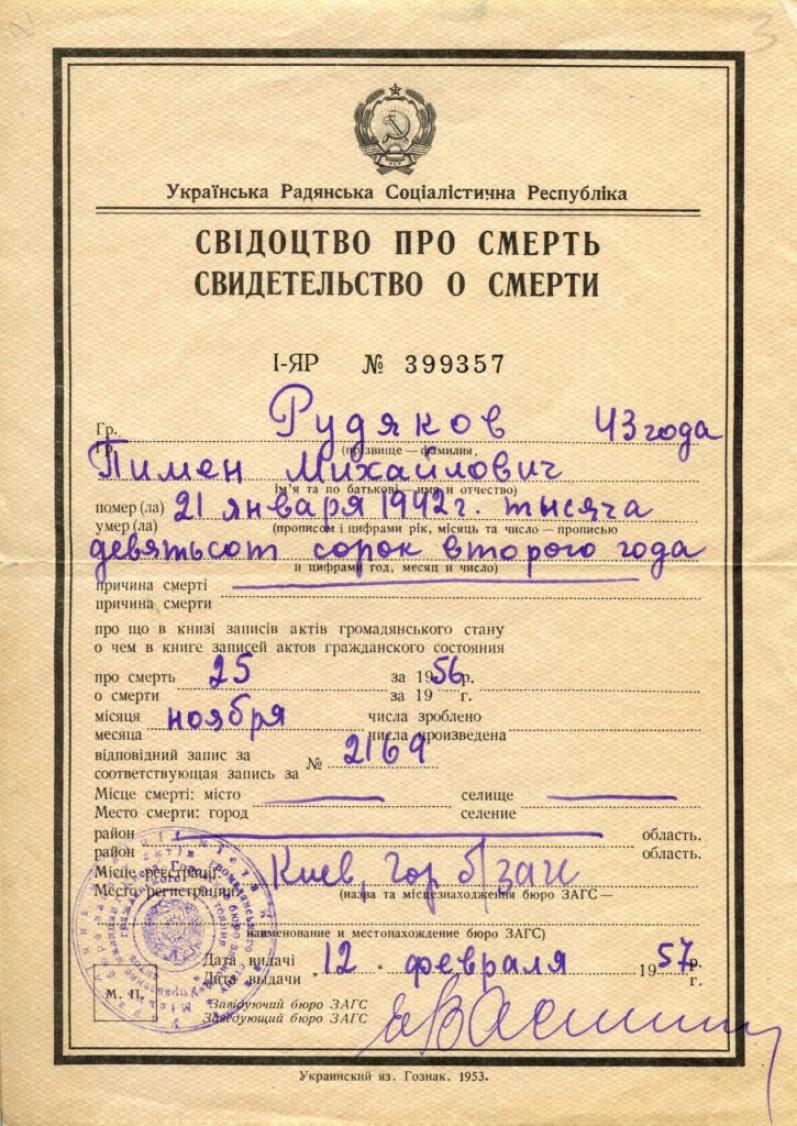 3
Українська Радянська Соціалістична Республіка
СВІДОЦТВО ПРО СМЕРТЬ
СВИДЕТЕЛЬСТВО О СМЕРТИ
І-ЯР № 399357
Гр. Рудяков 43 года
Гр. (прізвище — фамилия,
Пимен Михайлович
ім'я та по батькові — имя и отчество)
помер (ла) 21 января 1942 г. тысяча
умер (ла) (прописом і цифрами рік, місяць та число — прописью
девятьсот сорок второго года
и цифрами год, месяц и число)
причина смерті
причина смерти
про що в книзі записів актів громадянського стану
о чем в книге записей актов гражданского состояния
про смерть 25 за 1956 р.
о смерти за 19 г.
місяця ноября числа зроблено
месяца числа произведена
відповідний запис за № 2169
соответствующая запись за
Місце смерті: місто селище
Место смерти: город селение
район область.
район область.
Місце реєстрації: Киев, Гор б/загс
Место регистрации: (назва та місцезнаходження бюро ЗАГС —
наименование и местонахождение бюро ЗАГС)
Дата видачі „12" февраля 1957 р.
Дата выдачи г.
М. П.
Завідуючий бюро ЗАГС
Заведующий бюро ЗАГС
Украинский яз. Гознак. 1953.